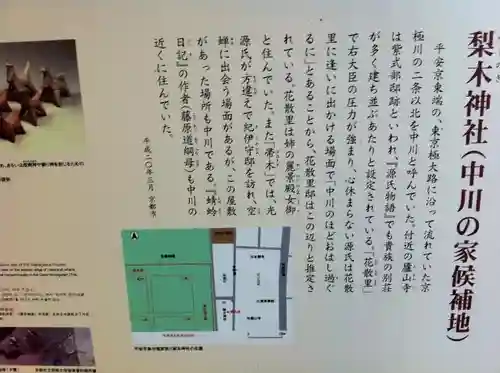 梨木神社(中川の家候補地)
平安京東端の、東京極大路に沿って流れていた京
極川の二条以北を中川と呼んでいた。付近の廬山寺
は紫式部邸跡といわれ、『源氏物語』でも貴族の別荘
が多く建ち並ぶあたりと設定されている。「花散里」
で右大臣の圧力が強まり、心休まらない源氏は花散
里に逢いに出かける場面で「中川のほどおはし過ぐ
るに」とあることから、花散里邸はこの辺りと推定さ
れている。花散里は姉の麗景殿女御
と住んでいた。また「帚木」では、光
源氏が方違えで紀伊守邸を訪れ、空
蝉に出会う場面があるが、この屋敷
があった場所も中川である。『蜻蛉
日記』の作者(藤原道綱母)も中川の
近くに住んでいた。
平成二〇年三月 京都市